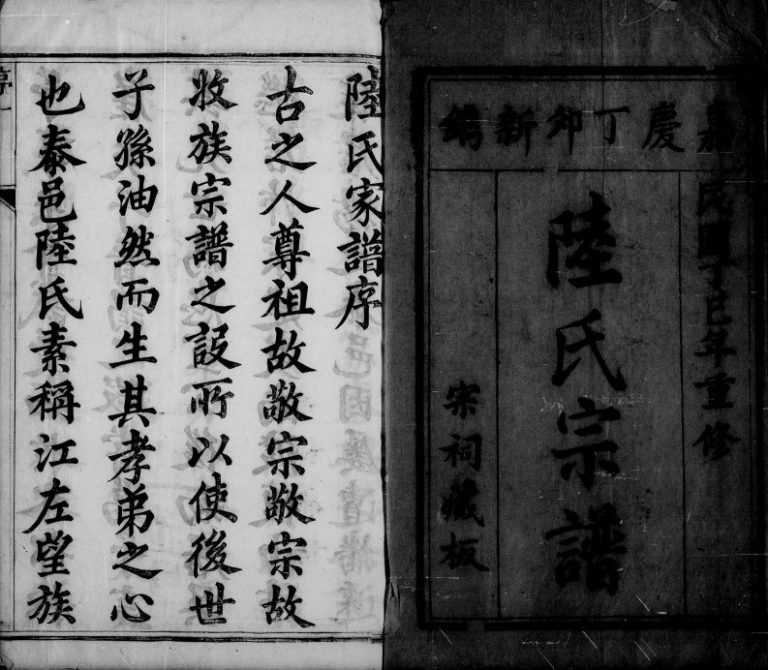 嘉慶丁卯新鐫
民國丁巳年重修
陸氏宗譜
宗祠藏板
陸氏家譜序
古之人尊祖故敬宗敬宗故
收族宗譜之設所以使後世
子孫油然而生其孝弟之心
也泰邑陸氏素稱江左望族